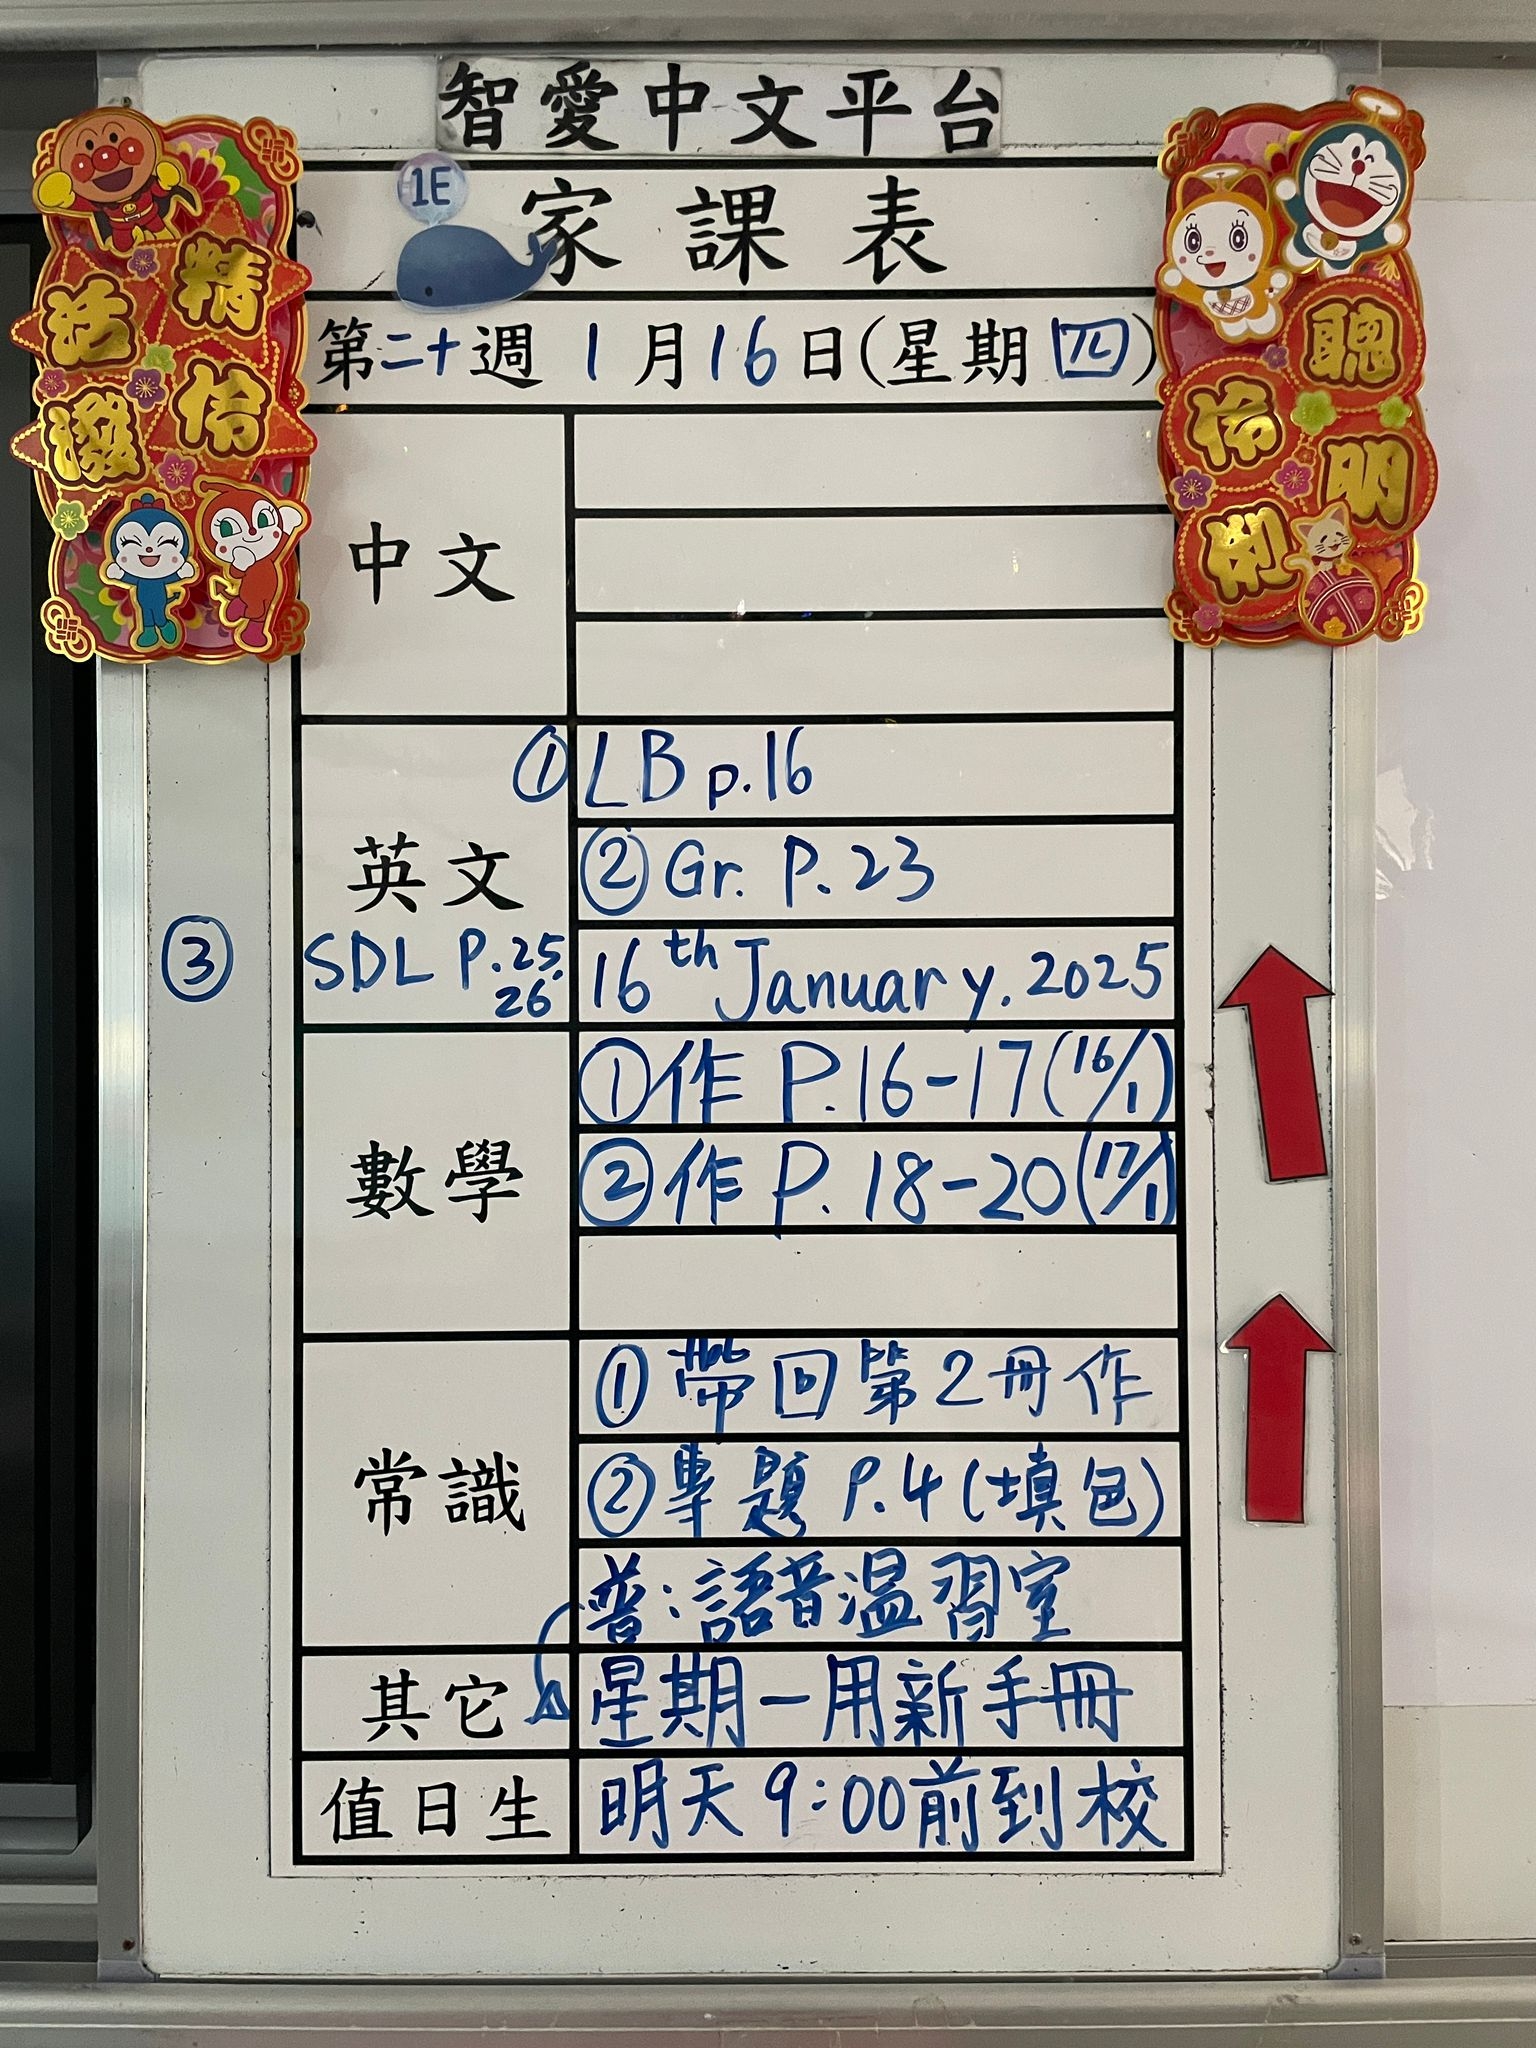 智愛中文平台
1E
家課表
第二十週 1月16日(星期四)
精伶
活潑
聰明
伶俐
中文
英文
① LB p.16
② Gr. P.23
③ SDL P.25, 26
16th January, 2025
數學
① 作 P.16-17 (16/1)
② 作 P.18-20 (17/1)
常識
① 帶回第2冊作
② 專題 P.4 (填色)
普:語音溫習室
其它
星期一用新手冊
值日生
明天9:00前到校